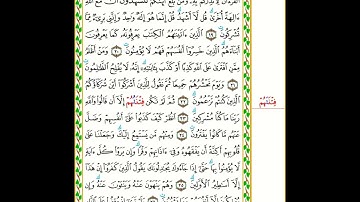 ءَالِهَةً أُخْرَىٰ قُل لَّا أَشْهَدُ قُلْ إِنَّمَا هُوَ إِلَٰهٌ وَٰحِدٌ وَإِنَّنِى بَرِىٓءٌ مِّمَّا
تُشْرِكُونَ ١٩ ٱلَّذِينَ ءَاتَيْنَٰهُمُ ٱلْكِتَٰبَ يَعْرِفُونَهُۥ كَمَا يَعْرِفُونَ
أَبْنَآءَهُمُ ٱلَّذِينَ خَسِرُوٓا۟ أَنفُسَهُمْ فَهُمْ لَا يُؤْمِنُونَ ٢٠ وَمَنْ أَظْلَمُ
مِمَّنِ ٱفْتَرَىٰ عَلَى ٱللَّهِ كَذِبًا أَوْ كَذَّبَ بِـَٔايَٰتِهِۦٓ إِنَّهُۥ لَا يُفْلِحُ ٱلظَّٰلِمُونَ
٢١ وَيَوْمَ نَحْشُرُهُمْ جَمِيعًا ثُمَّ نَقُولُ لِلَّذِينَ أَشْرَكُوٓا۟ أَيْنَ شُرَكَآؤُكُمُ
ٱلَّذِينَ كُنتُمْ تَزْعُمُونَ ٢٢ ثُمَّ لَمْ تَكُن فِتْنَتُهُمْ إِلَّآ أَن قَالُوا۟ وَٱللَّهِ
رَبِّنَا مَا كُنَّا مُشْرِكِينَ ٢٣ ٱنظُرْ كَيْفَ كَذَبُوا۟ عَلَىٰٓ أَنفُسِهِمْ وَضَلَّ
عَنْهُم مَّا كَانُوا۟ يَفْتَرُونَ ٢٤ وَمِنْهُم مَّن يَسْتَمِعُ إِلَيْكَ وَجَعَلْنَا عَلَىٰ
قُلُوبِهِمْ أَكِنَّةً أَن يَفْقَهُوهُ وَفِىٓ ءَاذَانِهِمْ وَقْرًا وَإِن يَرَوْا۟ كُلَّ ءَايَةٍ
لَّا يُؤْمِنُوا۟ بِهَا حَتَّىٰٓ إِذَا جَآءُوكَ يُجَٰدِلُونَكَ يَقُولُ ٱلَّذِينَ كَفَرُوٓا۟ إِنْ هَٰذَآ
إِلَّآ أَسَٰطِيرُ ٱلْأَوَّلِينَ ٢٥ وَهُمْ يَنْهَوْنَ عَنْهُ وَيَنْـَٔوْنَ عَنْهُ وَإِن
فِتْنَتُهُمْ